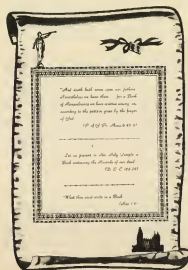 "And death hath come upon our fathers
Nevertheless we know them for a Book
of Remembrance we have written among us,
according to the pattern given by the finger
of God
(P. of G. P. Moses 6:45-6)
Let us present in His Holy Temple a
Book containing the Records of our dead
"What thou seest write in a Book